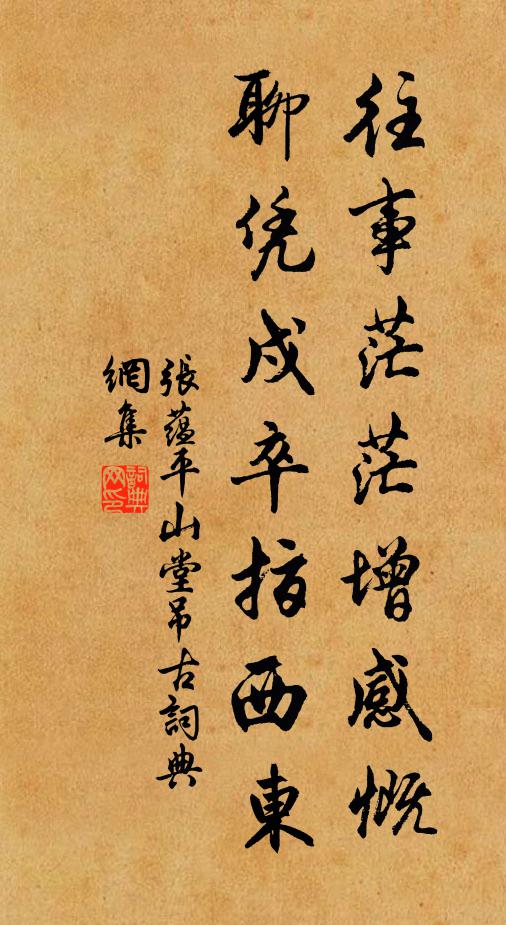 往事茫茫增感慨
聊凭戍卒指西東
張蘊平山堂吊古詞典
網集
詞典
网印